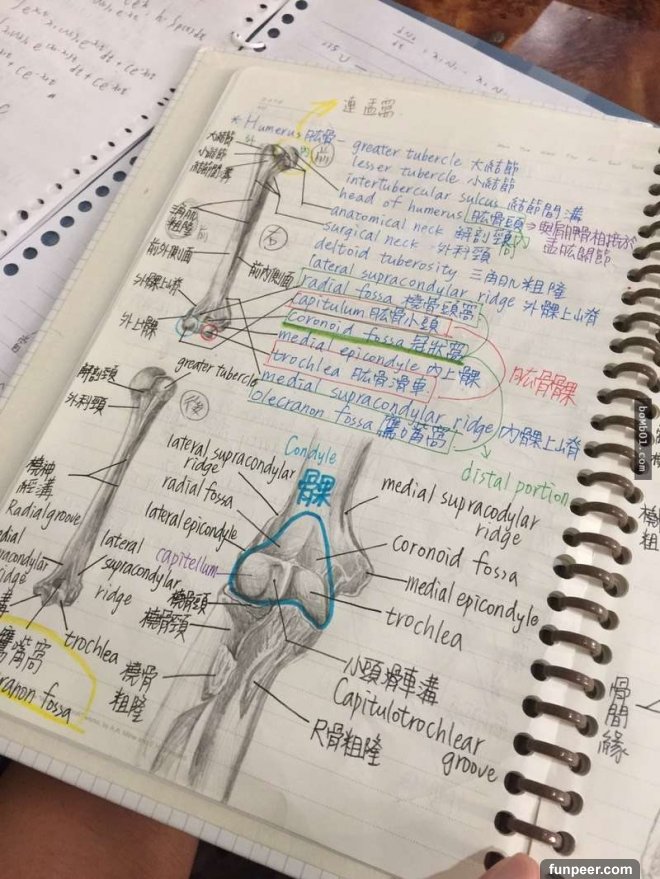 連盂窩
* Humerus 肱骨 - greater tubercle 大結節
lesser tubercle 小結節
intertubercular sulcus 結節間溝
head of humerus 肱骨頭→與肩胛骨相接於
盂肱關節
anatomical neck 解剖頸
surgical neck 外科頸
deltoid tuberosity 三角肌粗隆
lateral supracondylar ridge 外髁上脊
radial fossa 橈骨頭窩
capitulum 肱骨小頭
coronoid fossa 冠狀窩
medial epicondyle 內上髁
trochlea 肱骨滑車
medial supracondylar ridge 內髁上脊
olecranon fossa 鷹嘴窩
肱骨髁
distal portion
大結節
小結節
結節間溝
前
三角肌
粗隆
前外側面
右
前內側面
外髁上脊
外上髁
解剖頸
外科頸
greater tubercle
後
橈神
經溝
Radial groove
lateral
supracondylar
ridge
trochlea
鷹嘴窩
Condyle
髁
lateral supracondylar
ridge
radial fossa
lateral epicondyle
capitellum
橈骨頭
橈骨頸
橈骨
粗隆
medial supracodylar
ridge
coronoid fossa
medial epicondyle
trochlea
小頭滑車溝
Capitulotrochlear
groove
尺骨粗隆
骨
間
緣
bomb01.com
funpeer.com